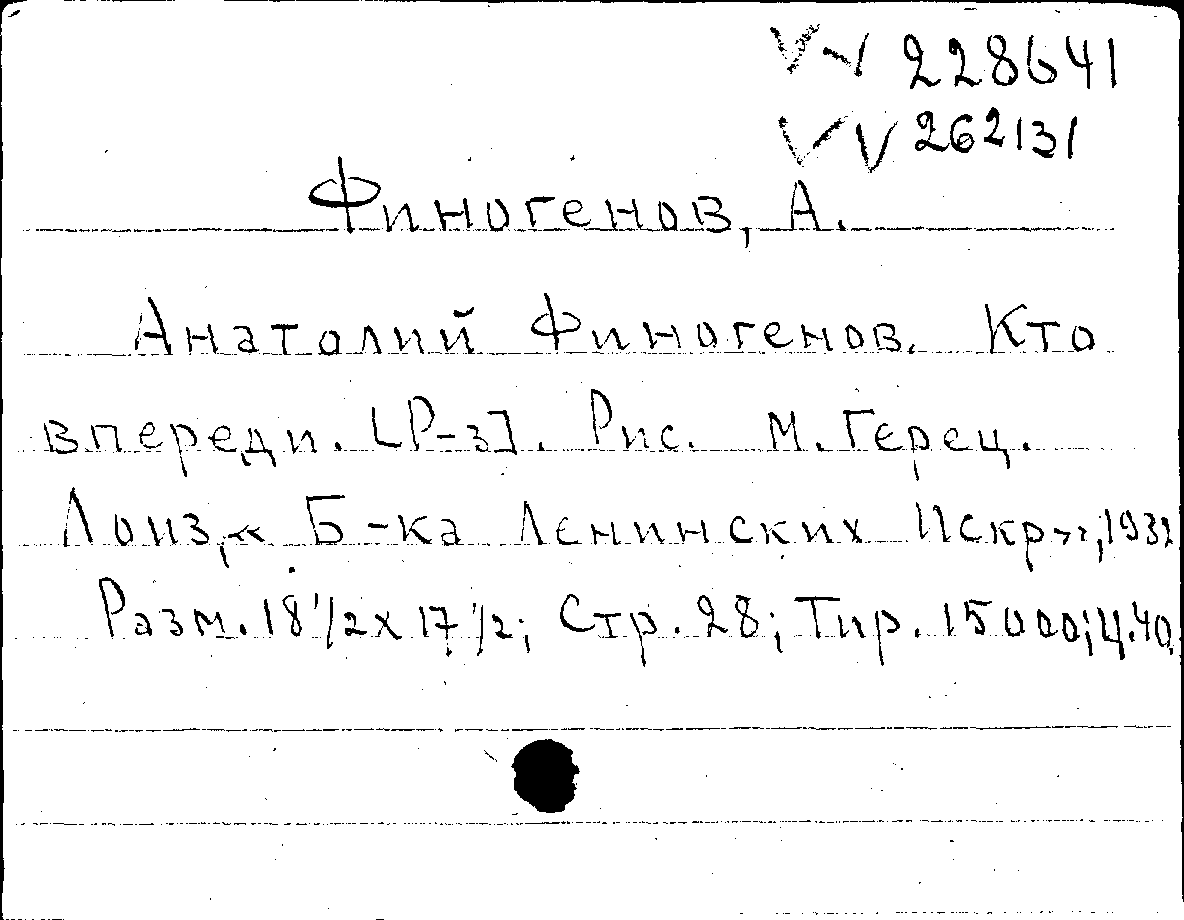 228641
262131
Финогенов, А.
Анатолий Финогенов. Кто
впереди. [Р-з]. Рис. М. Герец.
Лоиз, « Б-ка Ленинских Искр», 1932
Разм. 18 1/2 х 17 1/2; Стр. 28; Тир. 15000; ц. 40.